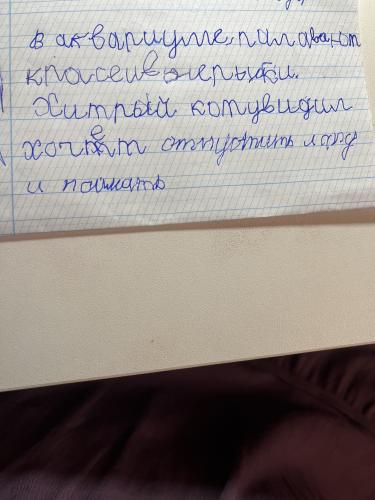 в аквариуме палавают
красивые рыбки.
Хитрый кот увидил
хочет отпустить лапу
и поймать